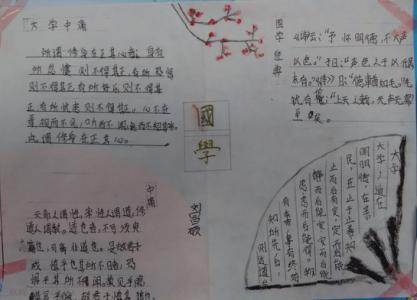 大学中庸
所谓修身在正其心者，身有
所忿懥 则不得其正，有所恐惧
则不得其正 有所好乐 则不得其
正 有所忧患 则不得其正。心不在
焉，视而不见，听而不闻，食而不知其味。
此谓修身在正其心。
国学经典
《诗》云：“予怀明德，不大声
以色。”子曰：“声色之于以化民，
末也。”《诗》曰：“德輶如毛。”毛
犹有伦，“上天之载，无声无臭”
至矣。
國
學
刘雪
中庸
天命之谓性，率性之谓道，修
道之谓教。道也者，不可须臾
离也，可离非道也。是故君子
戒慎乎其所不睹，恐
惧乎其所不闻。莫见乎隐，
莫显乎微，故君子慎其独也。
大学
大学之道在
明明德，在亲
民，在止于至善。知
止而后有定，定而后能
静，静而后能安，安而后能
虑，虑而后能得。物
有本末，事有终始，
知所先后，
则近道矣